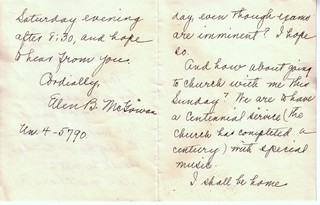 Saturday evening
after 8:30, and hope
to hear from you.
Cordially,
Ellen B. McGowan
Un. 4-5790
day, even though exams
are imminent? I hope
so.
And how about going
to church with me this
Sunday? We are to have
a Centennial service (the
Church has completed a
century) with special
music.
I shall be home